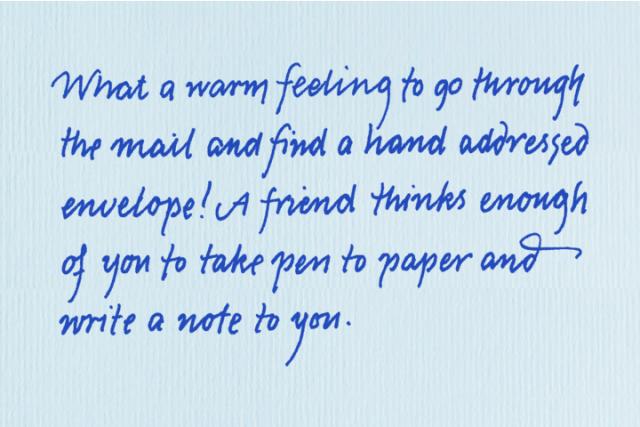 What a warm feeling to go through
the mail and find a hand addressed
envelope! A friend thinks enough
of you to take pen to paper and
write a note to you.